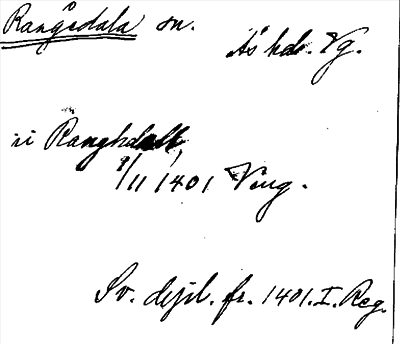 Rångedala sn.
Ås hd. Vg.
ii Ranghdall
9/11 1401 Veng.
Sv. dipl. fr. 1401. I. Reg.